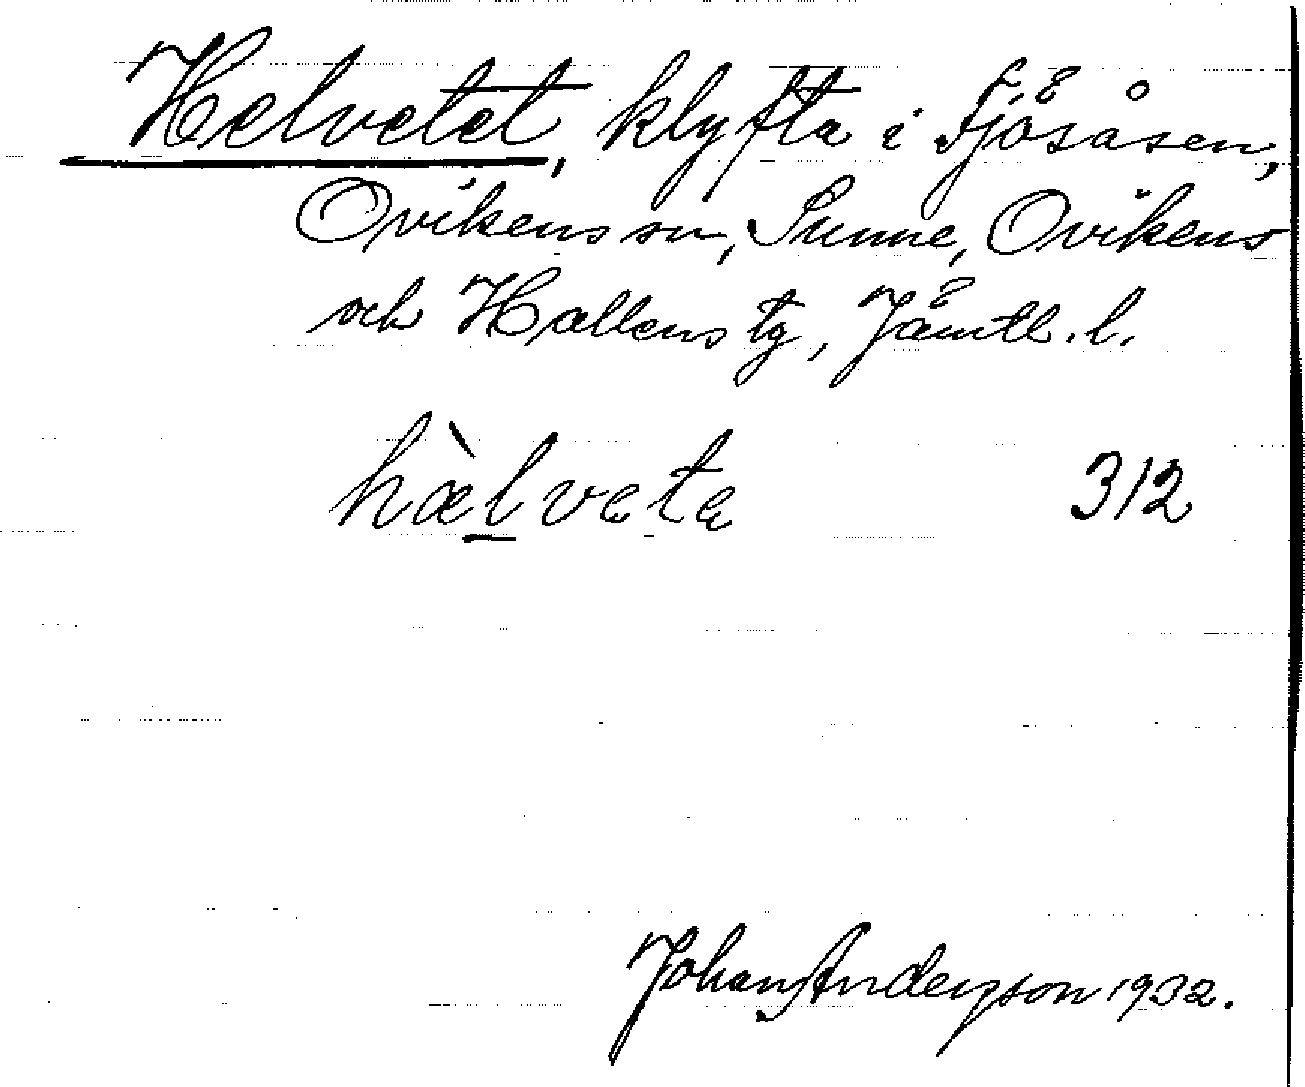 Helvetet, klyfta i Fjösåsen,
Ovikens sn, Sunne, Ovikens
och Hallens tg, Jämtl. l.
hæ̀lveta 312
Johan Anderson 1932.